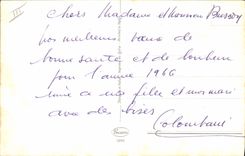 Chers Madame et Monsieur
nos meilleurs vœux de
bonne santé et de bonheur
pour l'année 1966
à ma fille et mon mari
avec des bises
Colombani